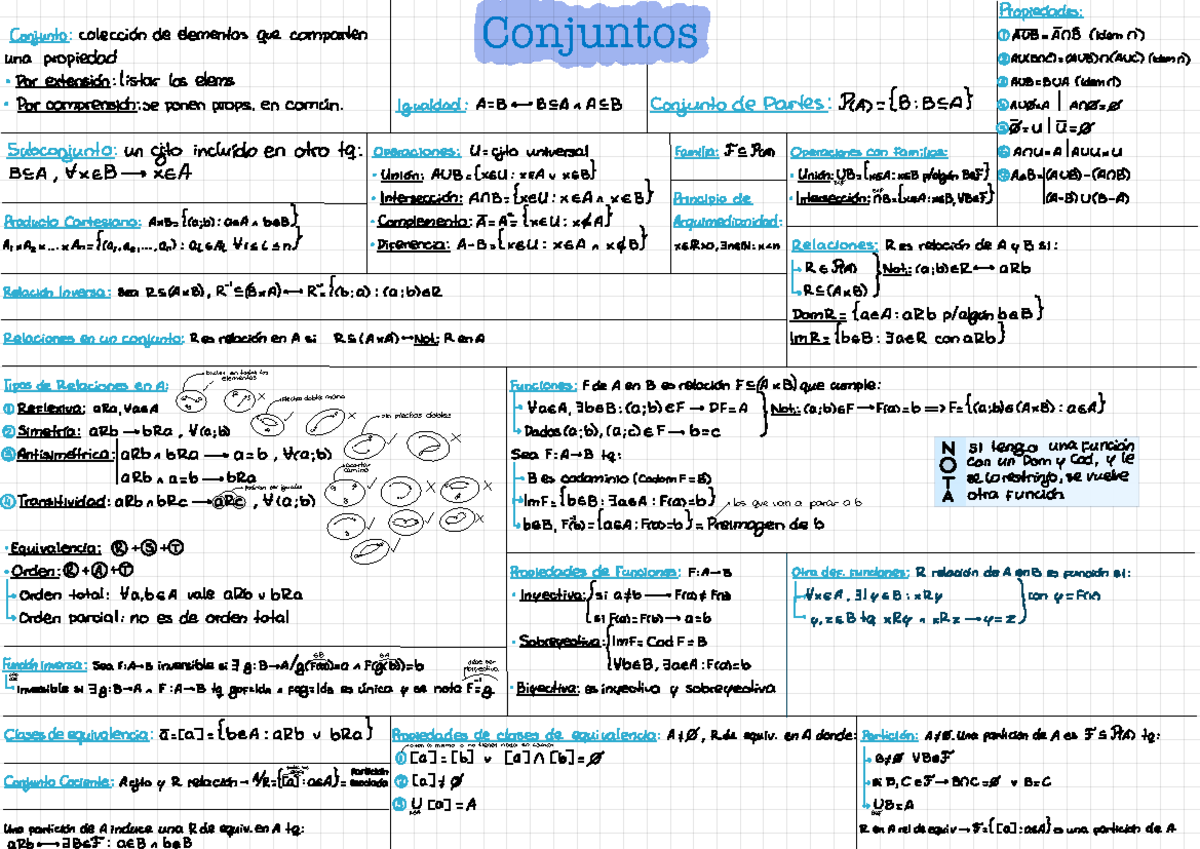 Conjuntos
Conjunto: colección de elementos que comparten
una propiedad
• Por extensión: listar los elems
• Por comprensión: se ponen props. en común.
Igualdad: A=B ⟷ B⊆A ∧ A⊆B
Conjunto de Partes: P(A)={B: B⊆A}
Propiedades:
① A∪B = A∩B (idem ∩)
② A∪(B∩C)=(A∪B)∩(A∪C) (idem ∩)
③ A∪B=B∪A (idem ∩)
④ A∪∅=A | A∩∅=∅
⑤ ∅̅=U | U̅=∅
⑥ A∩U=A | A∪U=U
⑦ A△B=|(A∪B)-(A∩B)
|(A-B)∪(B-A)
Subconjunto: un cjto incluído en otro tq:
B⊆A, ∀x∈B ⟶ x∈A
Operaciones: U=cjto universal
• Unión: A∪B={x∈U: x∈A ∨ x∈B}
• Intersección: A∩B={x∈U: x∈A ∧ x∈B}
• Complemento: A̅=Aᶜ={x∈U: x∉A}
• Diferencia: A-B={x∈U: x∈A ∧ x∉B}
Familia: F⊆P(A)
Principio de
Arquimedianidad:
x∈R>0, ∃n∈N: x<n
Operaciones con Familias:
• Unión: ∪B={x∈A: x∈B p/algún B∈F}
• Intersección: ∩B={x∈A: x∈B, ∀B∈F}
Producto Cartesiano: A×B={(a;b): a∈A ∧ b∈B}
A₁×A₂×...×Aₙ={(a₁,a₂,...,aₙ): aᵢ∈Aᵢ ∀1≤i≤n}
Relaciones: R es relación de A y B si:
R∈P(A)
R⊆(A×B)
Not: (a;b)∈R ⟷ aRb
Dom R={a∈A: aRb p/algún b∈B}
Im R={b∈B: ∃a∈R con aRb}
Relación Inversa: Sea R⊆(A×B), R⁻¹⊆(B×A) ⟷ R⁻¹={(b;a): (a;b)∈R
Relaciones en un conjunto: R es relación en A si R⊆(A×A) ⟶ Not: R en A
Tipos de Relaciones en A:
bucles en todos los
elementos
① Reflexiva: aRa, ∀a∈A
flecha doble mano
② Simetría: aRb ⟶ bRa, ∀(a;b)
sin flechas dobles
③ Antisimétrica: |aRb ∧ bRa ⟶ a=b, ∀(a;b)
|aRb ∧ a=b ⟶ bRa
acortar
camino
podrían ser iguales
④ Transitividad: aRb ∧ bRc ⟶ aRc, ∀(a;b)
• Equivalencia: Ⓡ+Ⓢ+Ⓣ
• Orden: Ⓡ+Ⓐ+Ⓣ
Orden total: ∀a,b∈A vale aRb ∨ bRa
Orden parcial: no es de orden total
Funciones: F de A en B es relación F⊆(A×B) que cumple:
∀a∈A, ∃b∈B: (a;b)∈F ⟶ DF=A
Dados (a;b), (a;c)∈F ⟶ b=c
Not: (a;b)∈F ⟶ F(a)=b ⟹ F={(a;b)∈(A×B): a∈A}
Sea F: A→B tq:
B es codominio (Codom F=B)
Im F={b∈B: ∃a∈A: F(a)=b}
los que van a parar a b
b∈B, F⁻¹(b)={a∈A: F(a)=b} = Preimagen de b
NOTA
si tengo una función
con un Dom y Cod, y le
se lo restrinjo, se vuelve
otra función
Propiedades de Funciones: F: A→B
• Inyectiva: |si a≠b ⟶ F(a)≠F(b)
|si F(a)=F(b) ⟶ a=b
• Sobreyectiva: |Im F=Cod F=B
|∀b∈B, ∃a∈A: F(a)=b
• Biyectiva: es inyectiva y sobreyectiva
Otra def. funciones: R relación de A en B es función si:
∀x∈A, ∃!y∈B: xRy
y,z∈B tq xRy ∧ xRz ⟶ y=z
con y=F(x)
Función inversa: Sea F: A→B inversible si ∃ g: B→A/g(F(a))=a ∧ F(g(b))=b
debe ser
biyectiva
Inversible si ∃ g: B→A ∧ F: A→B tq gof=idA ∧ fog=idB es única y se nota F⁻¹=g
Clases de equivalencia: a̅=[a]={b∈A: aRb ∨ bRa}
Conjunto Cociente: A cjto y R relación → A/R={[a]: a∈A}= Partición
asociada
Una partición de A induce una R de equiv. en A tq:
aRb ⟷ ∃B∈F: a∈B ∧ b∈B
Propiedades de clases de equivalencia: A≠∅, R de equiv. en A donde:
① [a]=[b] ∨ [a]∩[b]=∅
② [a]≠∅
③ ∪[a]=A
Partición: A≠∅. Una partición de A es F⊆P(A) tq:
B≠∅ ∀B∈F
si B,C∈F → B∩C=∅ ∨ B=C
∪B=A
R en A rel de equiv → F={[a]: a∈A} es una partición de A